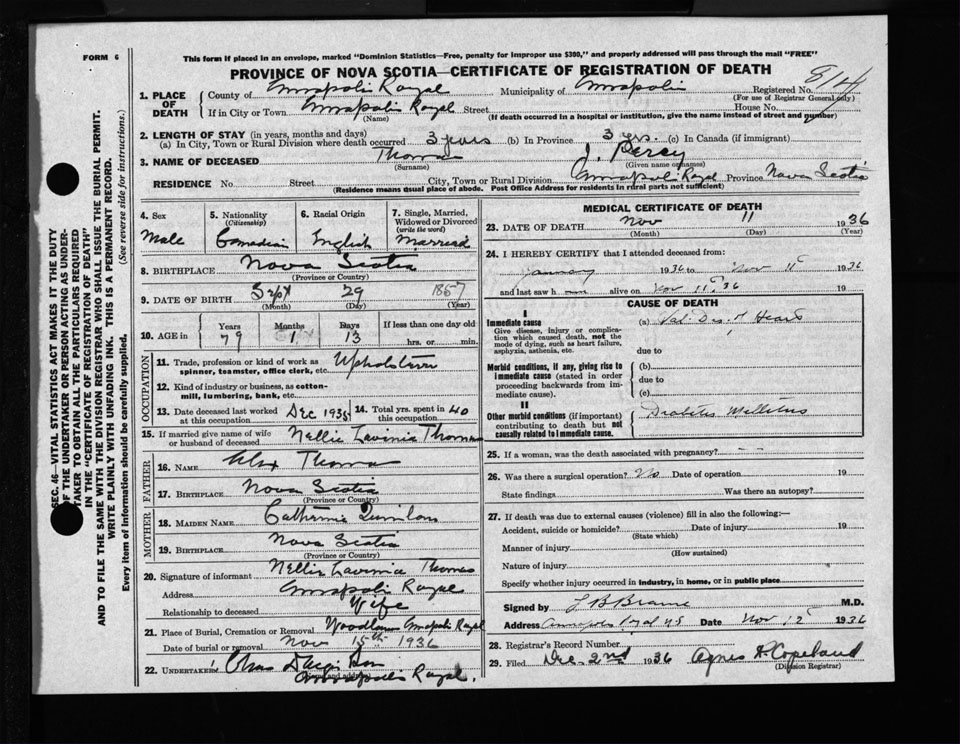 FORM 6
This form if placed in an envelope, marked "Dominion Statistics—Free, penalty for improper use $300," and properly addressed will pass through the mail "FREE"
PROVINCE OF NOVA SCOTIA—CERTIFICATE OF REGISTRATION OF DEATH
1. PLACE OF DEATH
County of Annapolis Royal Municipality of Annapolis Registered No.
(For use of Registrar General only)
If in City or Town Annapolis Royal Street House No.
(Name) (If death occurred in a hospital or institution, give the name instead of street and number)
2. LENGTH OF STAY (in years, months and days)
(a) In City, Town or Rural Division where death occurred 3 years (b) In Province 3 yrs. (c) In Canada (if immigrant)
3. NAME OF DECEASED Thomas J. Percy
(Surname) (Given name or names)
RESIDENCE No. Street City, Town or Rural Division Annapolis Royal Province Nova Scotia
(Residence means usual place of abode. Post Office Address for residents in rural parts not sufficient)
4. Sex Male
5. Nationality (Citizenship) Canadian
6. Racial Origin English
7. Single, Married, Widowed or Divorced (write the word) Married
8. BIRTHPLACE Nova Scotia
(Province or Country)
9. DATE OF BIRTH Sept 29 1857
(Month) (Day) (Year)
10. AGE in Years Months Days If less than one day old
79 1 13 hrs. or min.
OCCUPATION
11. Trade, profession or kind of work as spinner, teamster, office clerk, etc.
12. Kind of industry or business, as cotton-mill, lumbering, bank, etc.
13. Date deceased last worked at this occupation Dec 1935
14. Total yrs. spent in this occupation 40
15. If married give name of wife or husband of deceased Nellie Lavinia Thomas
FATHER
16. NAME Alex Thomas
17. BIRTHPLACE Nova Scotia
(Province or Country)
MOTHER
18. MAIDEN NAME Catherine
19. BIRTHPLACE Nova Scotia
(Province or Country)
20. Signature of informant Nellie Lavinia Thomas
Address Annapolis Royal
Relationship to deceased Wife
21. Place of Burial, Cremation or Removal Woodlawn Annapolis Royal
Date of burial or removal Nov 15th 1936
22. UNDERTAKER Chas
(Name and address) Annapolis Royal.
MEDICAL CERTIFICATE OF DEATH
23. DATE OF DEATH Nov 11 1936
(Month) (Day) (Year)
24. I HEREBY CERTIFY that I attended deceased from:
January 1936 to Nov 11 1936
and last saw h alive on Nov 11 36 19
CAUSE OF DEATH
I
Immediate cause (a) Val. Dis. of Heart
Give disease, injury or complication which caused death, not the mode of dying, such as heart failure, asphyxia, asthenia, etc.
due to
Morbid conditions, if any, giving rise to immediate cause (stated in order proceeding backwards from immediate cause).
(b)
due to
(c)
II
Other morbid conditions (if important) contributing to death but not causally related to immediate cause. Diabetes Mellitus
25. If a woman, was the death associated with pregnancy? - -
26. Was there a surgical operation? No Date of operation 19
State findings Was there an autopsy?
27. If death was due to external causes (violence) fill in also the following:—
Accident, suicide or homicide? Date of injury 19
(State which)
Manner of injury
(How sustained)
Nature of injury
Specify whether injury occurred in industry, in home, or in public place
Signed by L B Braine M.D.
Address Annapolis Royal N.S Date Nov 12 1936
28. Registrar's Record Number
29. Filed Dec. 2nd 1936 Agnes Copeland
(Division Registrar)
SEC. 46—VITAL STATISTICS ACT MAKES IT THE DUTY
OF THE UNDERTAKER OR PERSON ACTING AS UNDER-
TAKER TO OBTAIN ALL THE PARTICULARS REQUIRED
IN THE "CERTIFICATE OF REGISTRATION OF DEATH"
AND TO FILE THE SAME WITH THE DIVISION REGISTRAR WHO SHALL ISSUE THE BURIAL PERMIT.
WRITE PLAINLY WITH UNFADING INK. THIS IS A PERMANENT RECORD.
Every item of information should be carefully supplied. (See reverse side for instructions.)